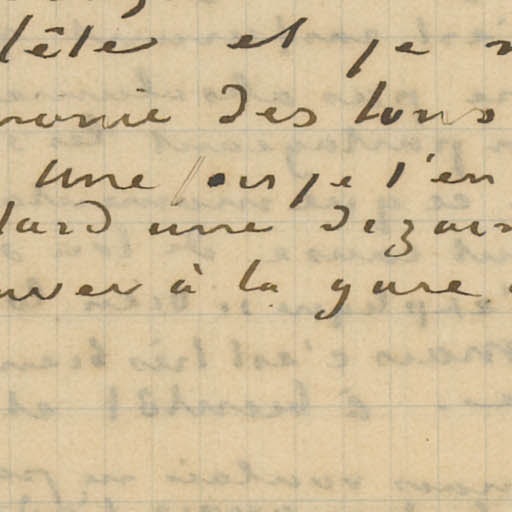 tête et je
des tons
une fois je t'en
tard une dizain
ouver à la gare